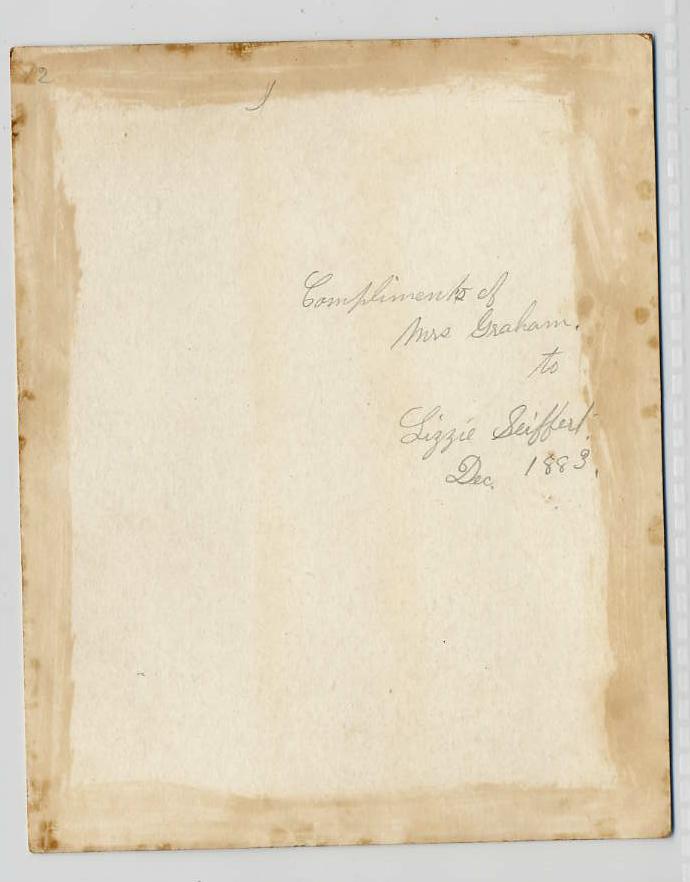 2
Compliments of
Mrs Graham.
to
Lizzie Seiffert.
Dec. 1883.